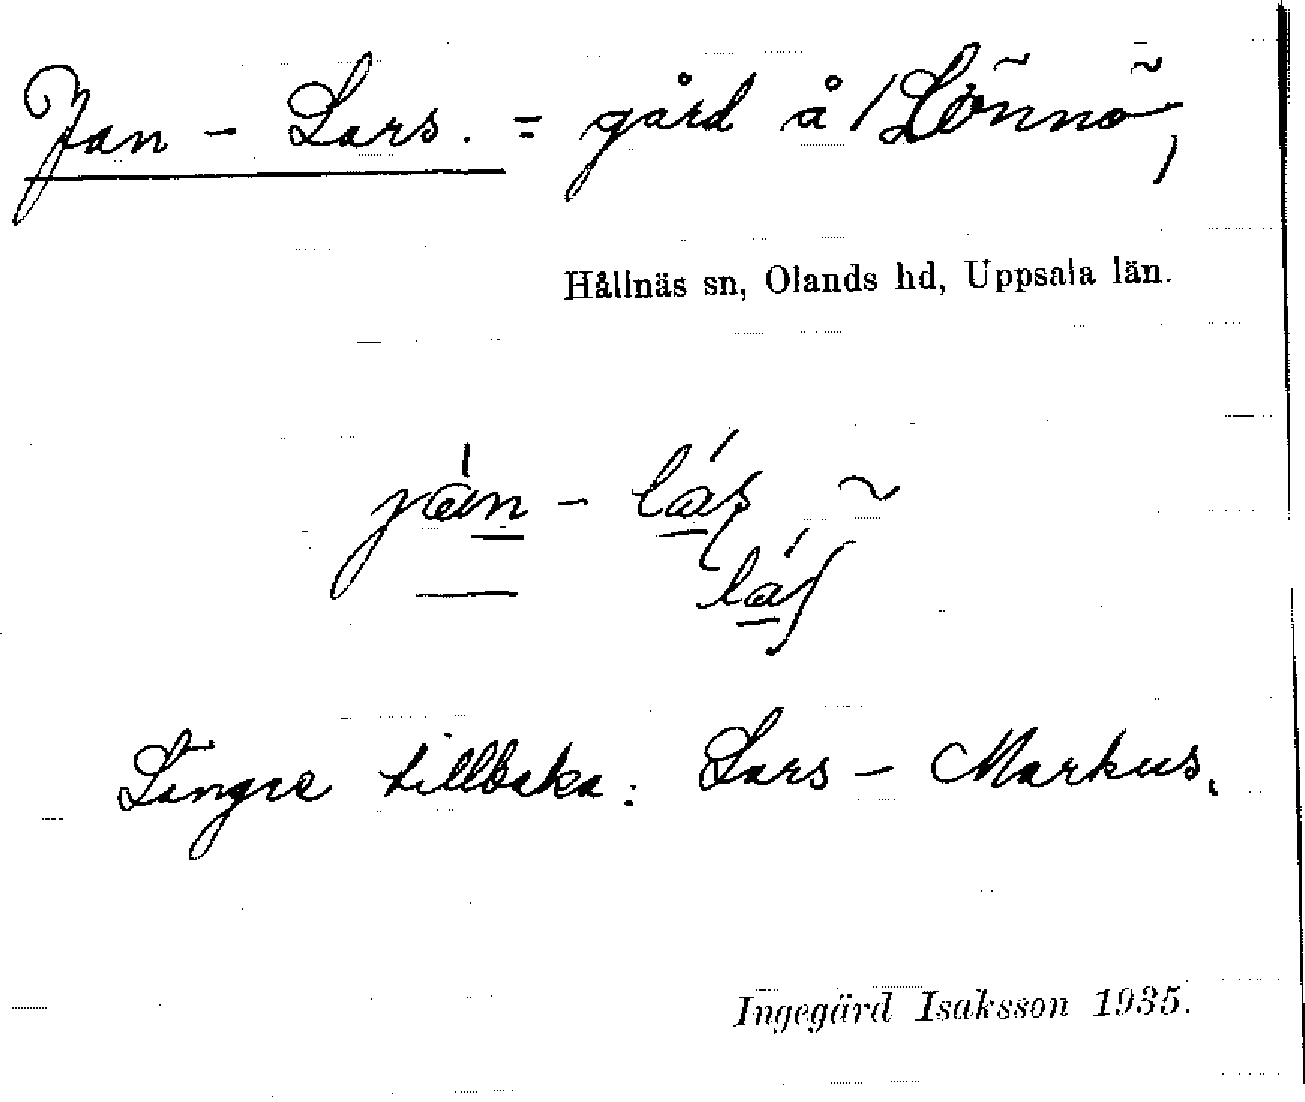 Jan - Lars. = gård å /Lönnö,
Hållnäs sn, Olands hd, Uppsala län.
Längre tillbaka: Lars - Markus.
Ingegärd Isaksson 1935.